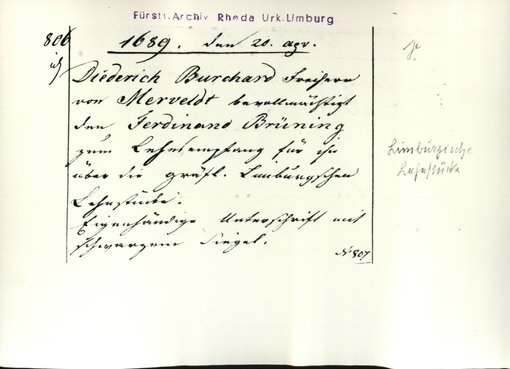 Fürstl. Archiv Rheda Urk. Limburg
806
1689. den 20. apr.
Diederich Burchard Freiherr
von Merveldt bevollmächtigt
den Ferdinand Brüning
zum Lehnsempfang für ihn
über die gräfl. Limburgschen
Lehnstücke.
Eigenhändige Unterschrift mit
schwarzem Siegel.
Nº 807
Limburgische
Lehnstücke